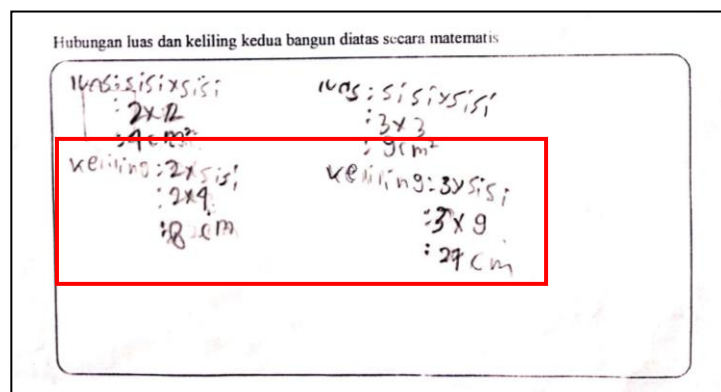 Hubungan luas dan keliling kedua bangun diatas secara matematis
luas: sisi x sisi
: 2 x 2
: 4 cm²
keliling: 2 x sisi
: 2 x 4
: 8 cm
luas: sisi x sisi
: 3 x 3
: 9 cm²
keliling: 3 x sisi
: 3 x 9
: 27 cm